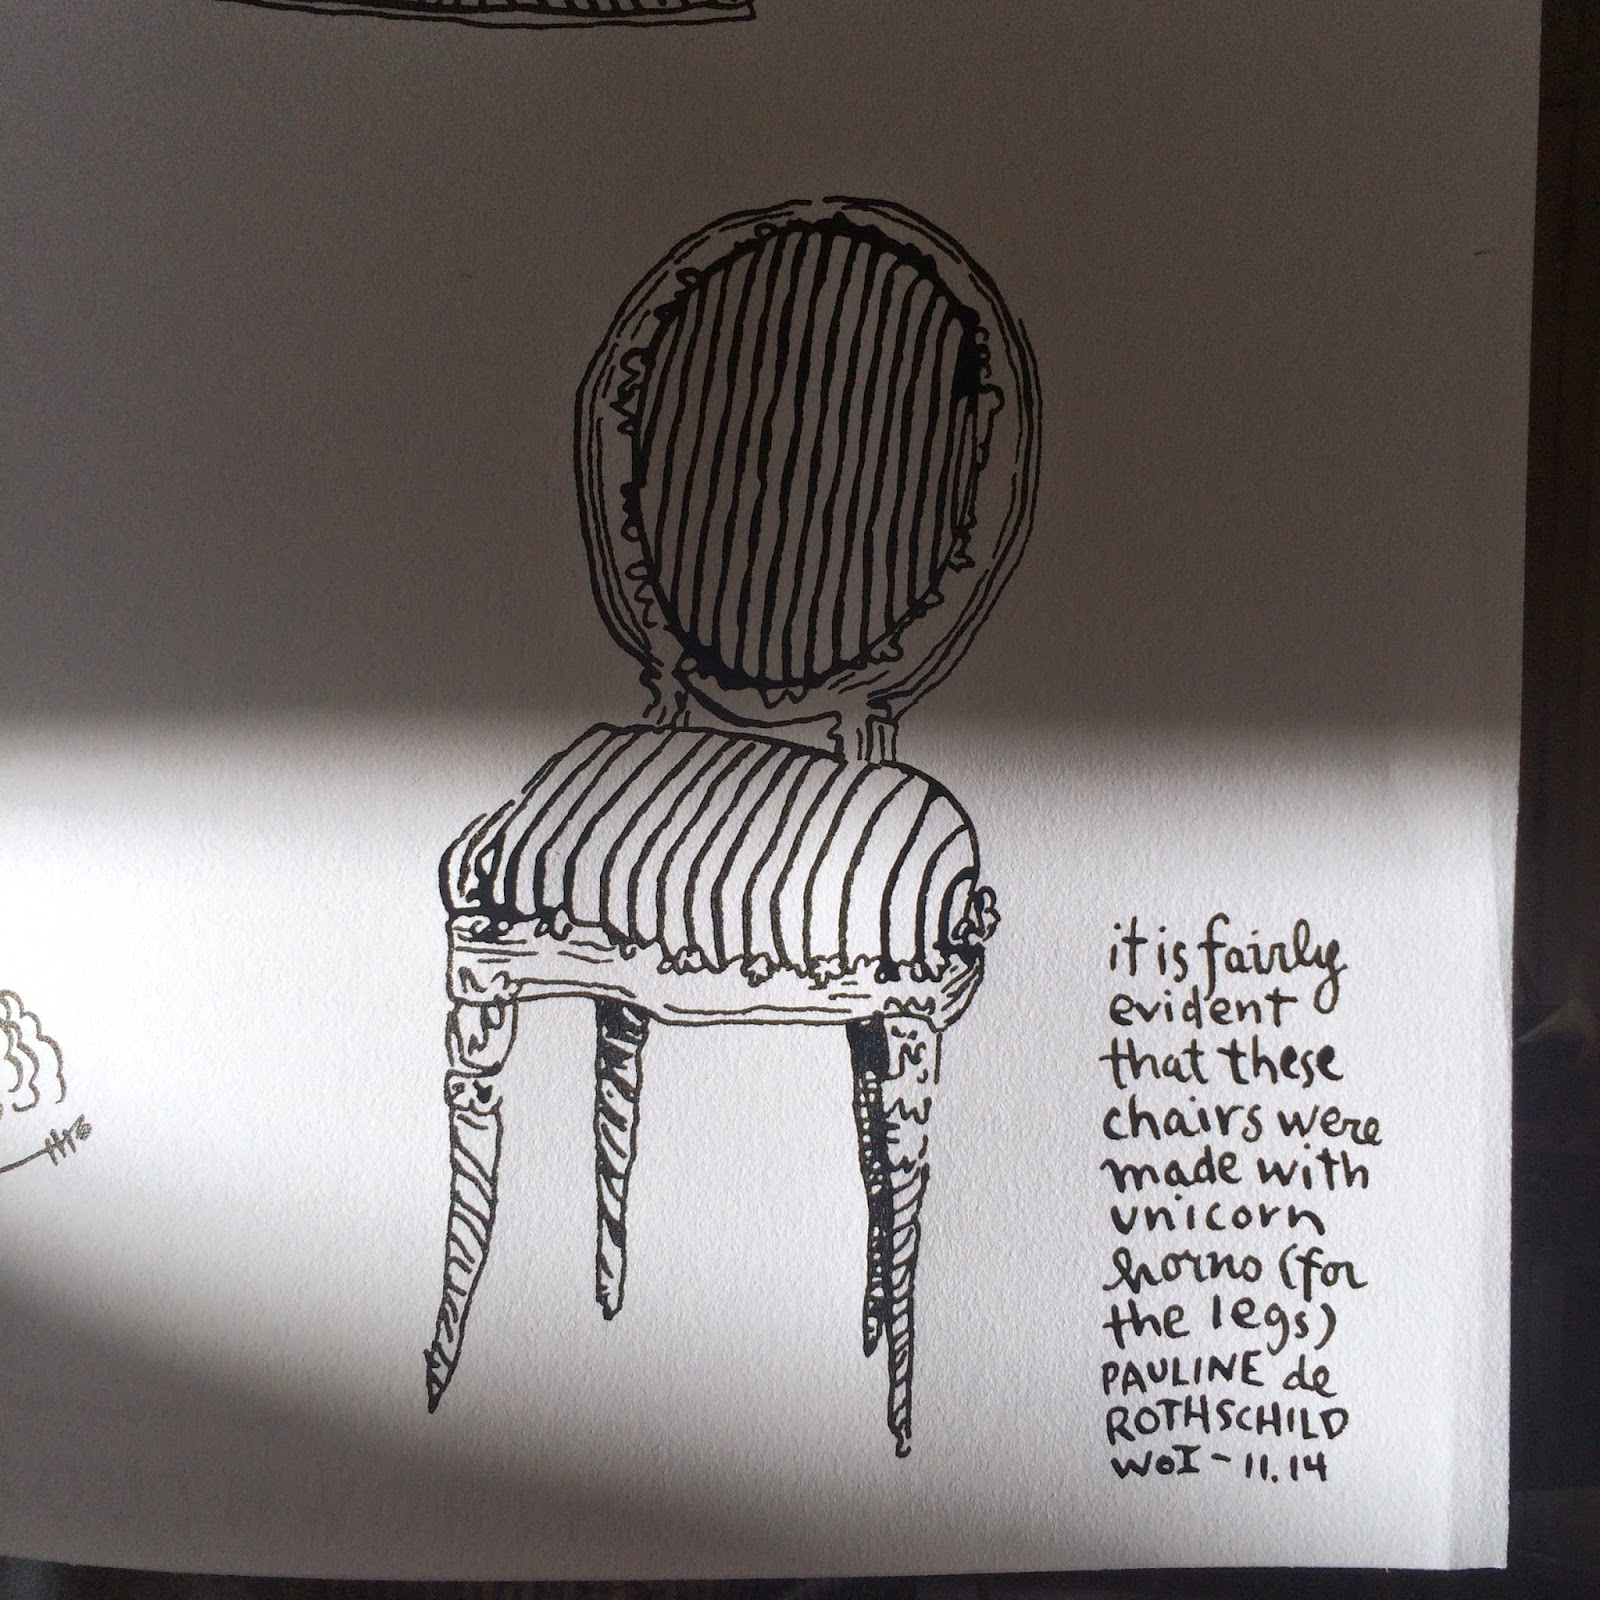 it is fairly
evident
that these
chairs were
made with
unicorn
horns (for
the legs)
PAULINE de
ROTHSCHILD
WoI - 11.14